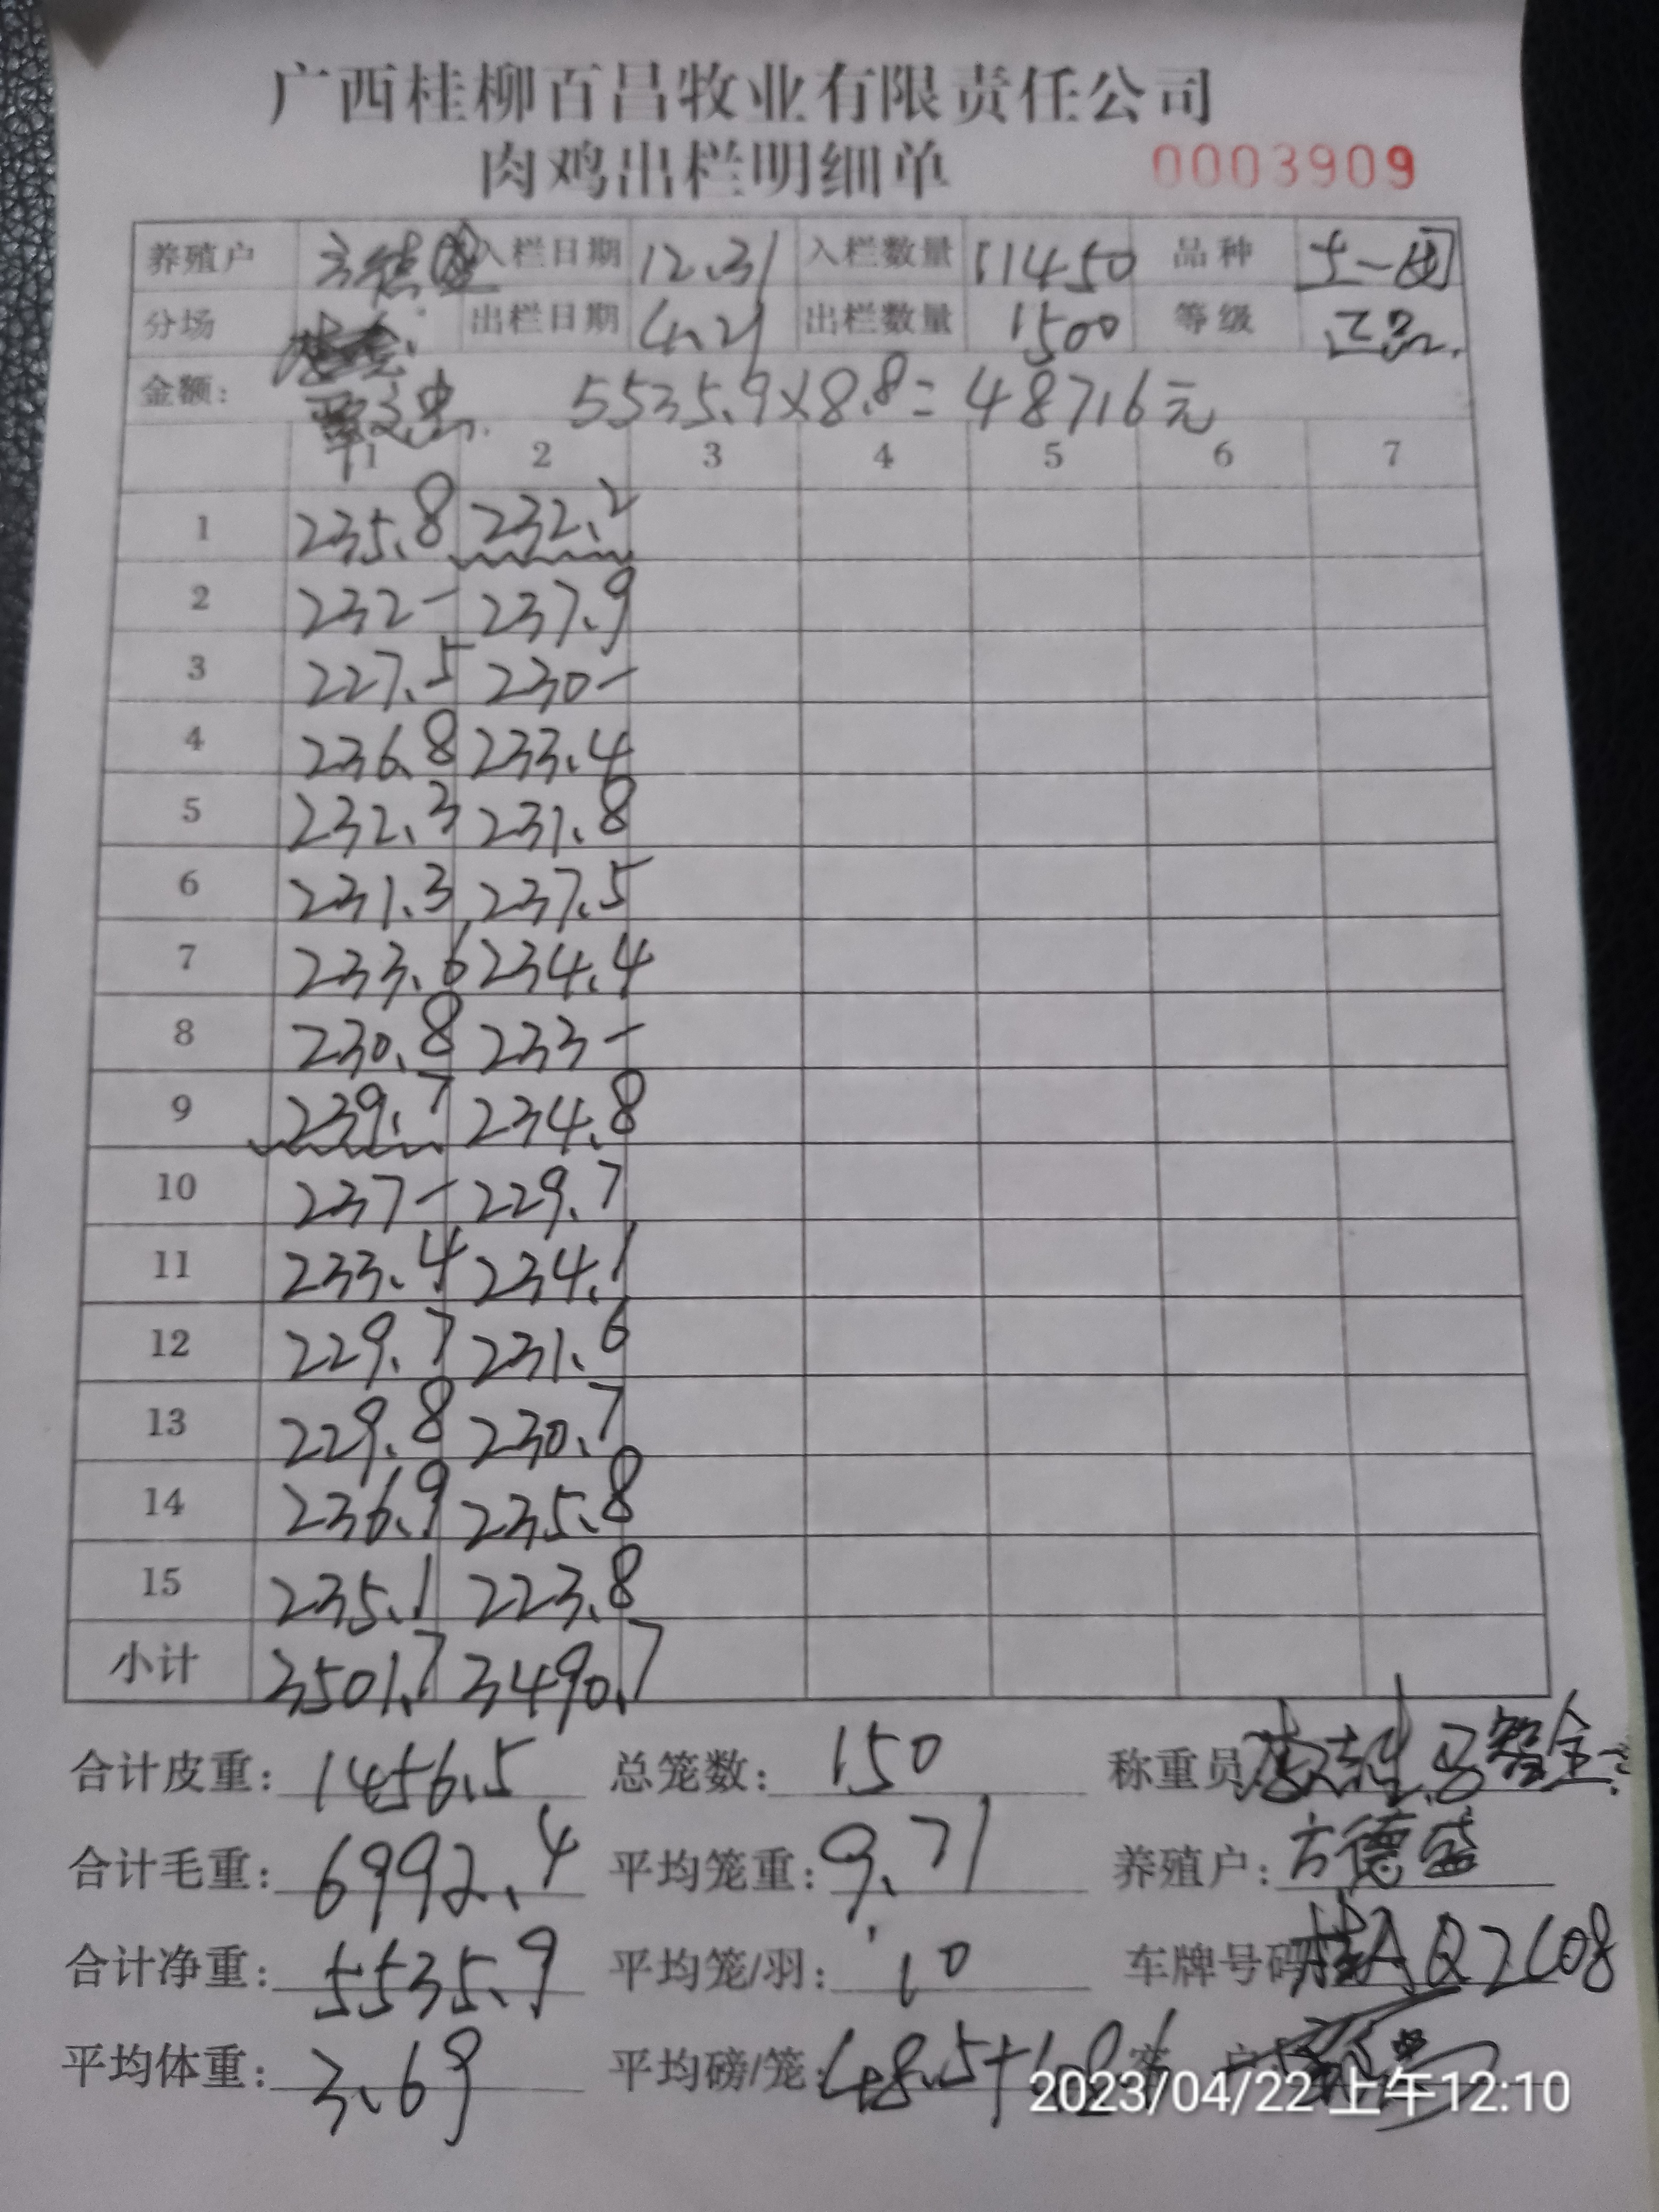 广西桂柳百昌牧业有限责任公司
肉鸡出栏明细单 0003909
养殖户 入栏日期 12.31 入栏数量 11450 品种 土一
分场 出栏日期 4.21 出栏数量 1500 等级 正品.
金额: 5535.9×8.8= 48716元
1 2 3 4 5 6 7
1 235.8 232.2
2 232- 237.9
3 227.5 230-
4 236.8 233.4
5 232.3 231.8
6 231.3 237.5
7 233.6 234.4
8 230.8 233-
9 239.7 234.8
10 237- 229.7
11 233.4 234.1
12 229.7 231.6
13 229.8 230.7
14 236.9 235.8
15 235.1 223.8
小计 3501.7 3490.7
合计皮重: 1456.5 总笼数: 150 称重员
合计毛重: 6992.4 平均笼重: 9.71 养殖户: 方德盛
合计净重: 5535.9 平均笼/羽: 10 车牌号码 桂A Q2608
平均体重: 3.69 平均磅/笼: 48.5+ 客户
2023/04/22 上午12:10